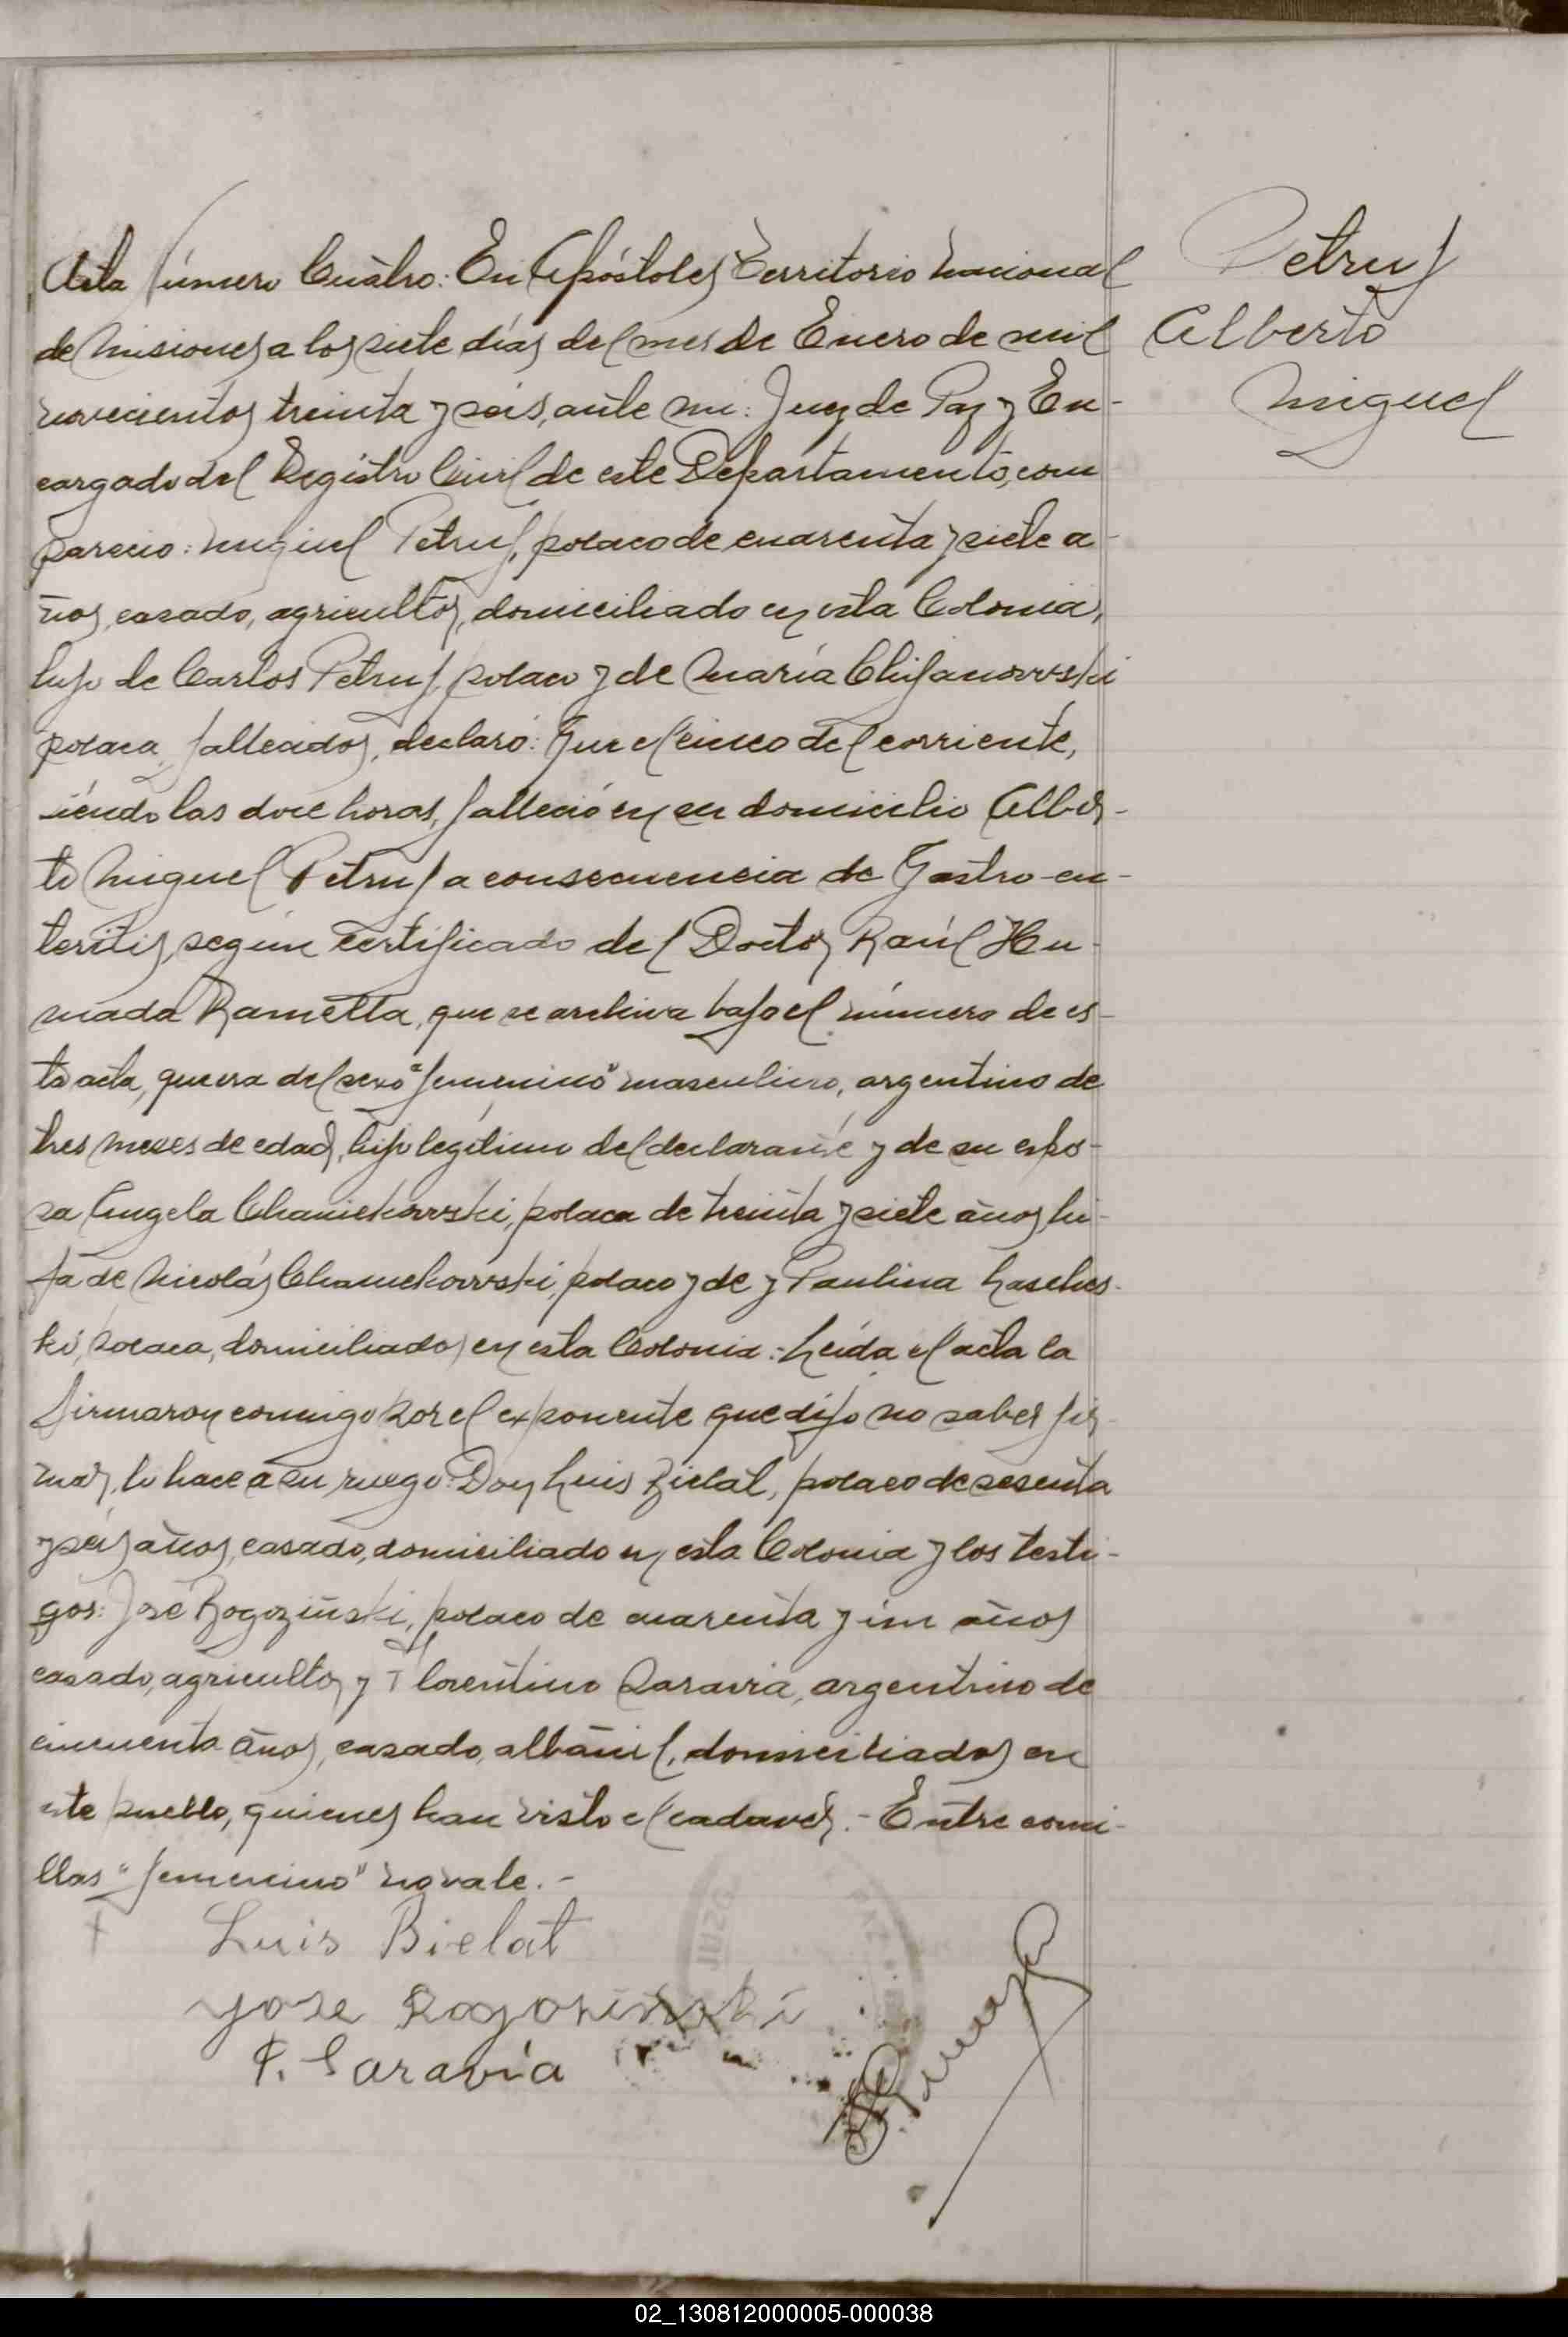 Acta número Cuatro: En Apóstoles Territorio Nacional
de Misiones a los siete días del mes de Enero de mil
novecientos treinta y seis, ante mi: Juez de Paz y En-
cargado del Registro Civil de este Departamento, com
parecio: Miguel Petruf, polaco de cuarenta y siete a-
ños, casado, agricultor, domiciliado en esta Colonia,
hijo de Carlos Petruf, polaco y de María
polaca, fallecidos, declaró: Que el cinco del corriente,
siendo las doce horas, falleció en su domicilio Alber-
to Miguel Petruf a consecuencia de Gastro-en-
teritis, según certificado del Doctor Raúl Hu-
mada Ramella, que se archiva bajo el número de es-
ta acta, que era del sexo "femenino" masculino, argentino de
tres meses de edad, hijo legítimo del declarante y de su espo-
sa Angela Chamekowski, polaca de treinta y siete años, hi-
ja de Nicolás Chamekowski, polaco y de y Paulina Lasches-
ki, polaca, domiciliados en esta Colonia: Leída el acta la
firmaron conmigo por el exponente que dijo no saber fir-
mar, lo hace a su ruego: Don Luis Bielat, polaco de sesenta
y seis años, casado, domiciliado en esta Colonia y los testi-
gos: José Rogozinski, polaco de cuarenta y un años
casado, agricultor y Florentino Saravia, argentino de
cincuenta años, casado, albañil, domiciliados en
este pueblo, quienes han visto el cadaver.- Entre comi-
llas "femenino" no vale.-
Luis Bielat
Jose Rogozinski
F. Saravia
Petruf
Alberto
Miguel
02_130812000005-000038